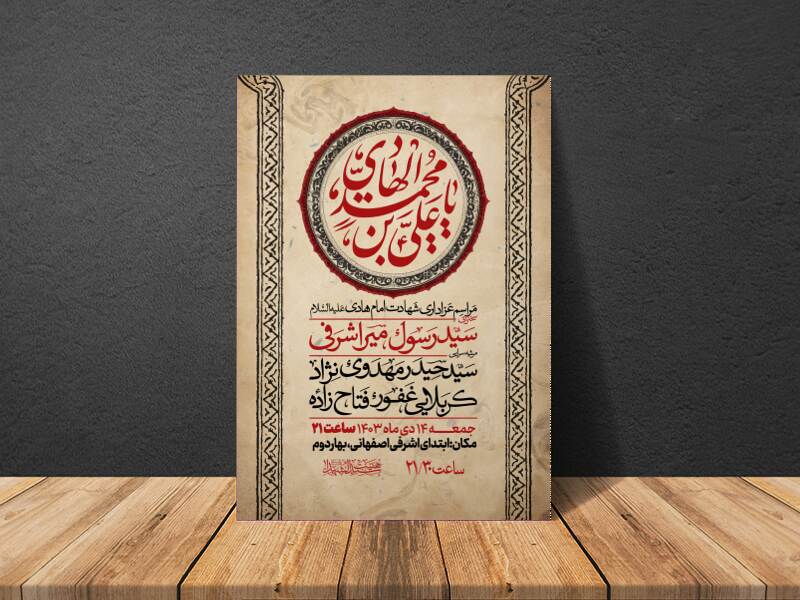 یا علی بن محمد الهادی
مراسم عزاداری شهادت امام هادی علیه‌السلام
سخنرانی
سید رسول میراشرفی
مرثیه‌سرایی
سید حیدر مهدوی نژاد
کربلایی غفور فتاح زاده
جمعه ۱۴ دی ماه ۱۴۰۳ ساعت ۲۱
مکان: ابتدای اشرفی اصفهانی، بهار دوم
ساعت ۲۱/۳۰